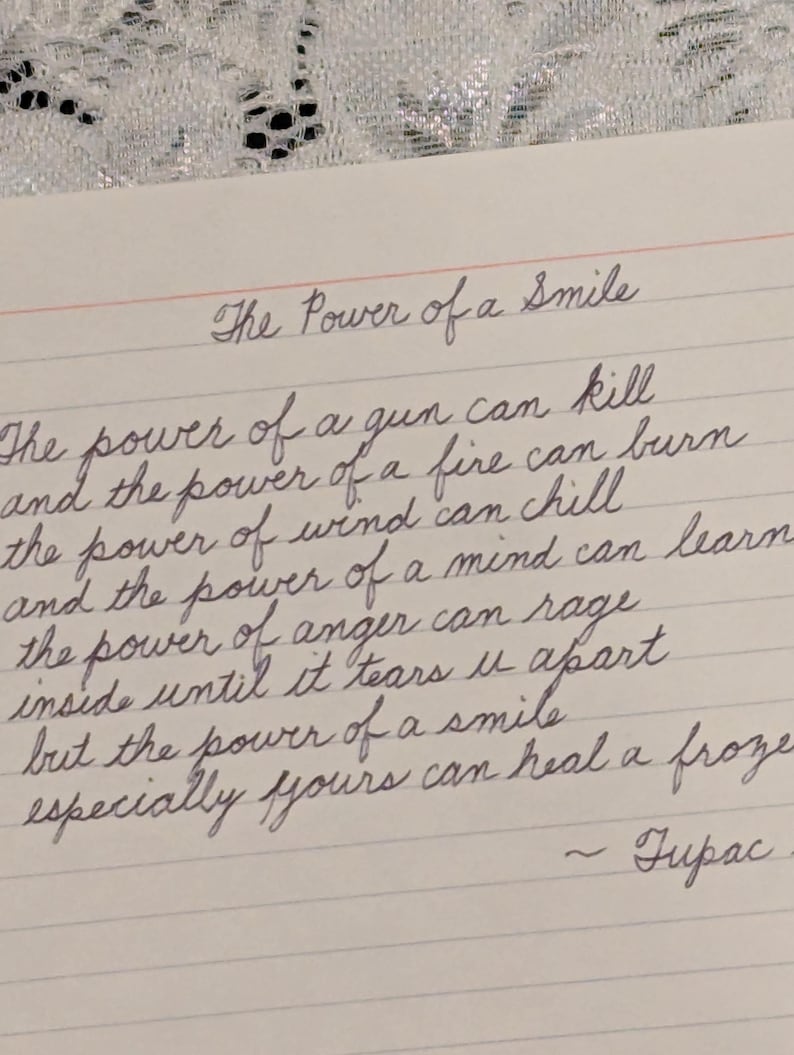 The Power of a Smile
The power of a gun can kill
and the power of a fire can burn
the power of wind can chill
and the power of a mind can learn
the power of anger can rage
inside until it tears u apart
but the power of a smile
especially yours can heal a froze
~ Tupac